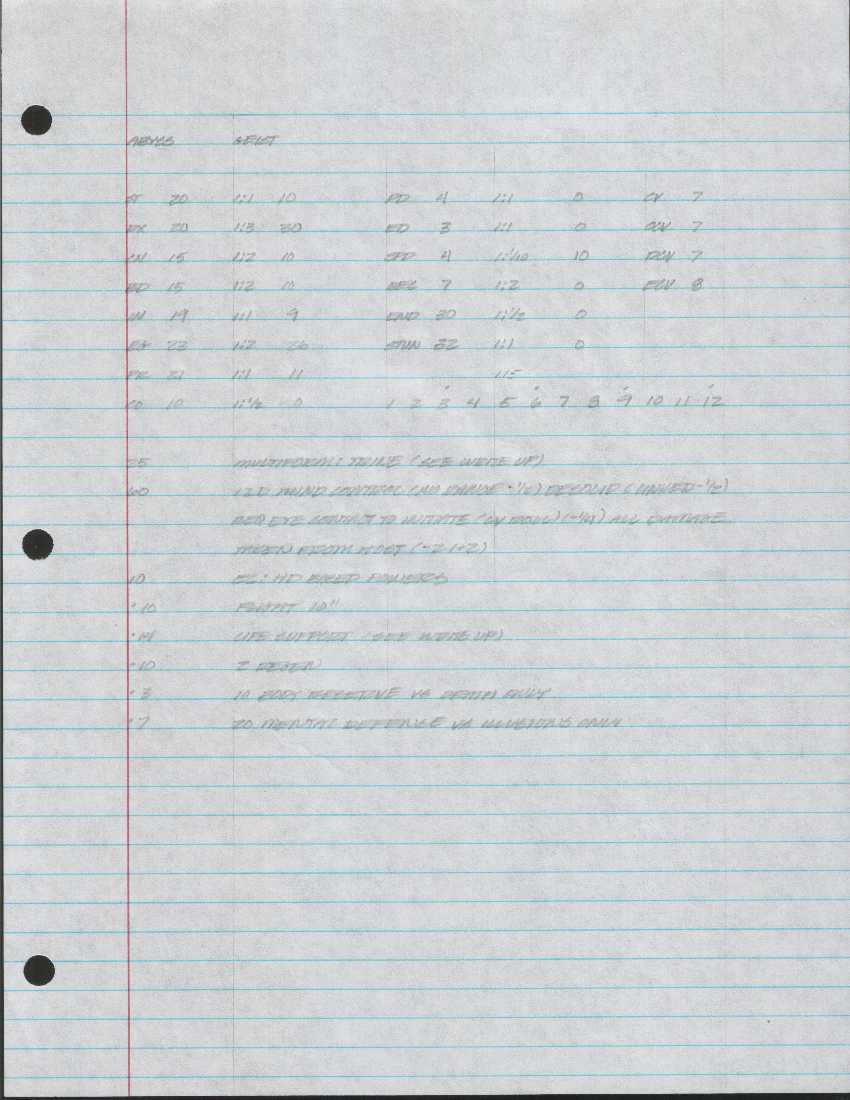 ABYSS
ST 20 1:1 10 PD 4 1:1 0 CV 7
DX 20 1:3 30 ED 3 1:1 0 OCV 7
CN 15 1:2 10 SPD 4 1:1/10 10 DCV 7
BD 15 1:2 10 REC 7 1:2 0 ECV 8
IN 19 1:1 9 END 30 1:1/2 0
EG 23 1:2 26 STUN 32 1:1 0
PR 21 1:1 11 115
CO 10 1:1/2 0 1 2 3 4 5 6 7 8 9 10 11 12
25 MULTIFORM: (SEE WRITE UP)
60 12D MIND CONTROL (NO RANGE -1/2) (LINKED -1/2)
REQ EYE CONTACT TO INITIATE (CV ROLL) (-1/4) ALL DAMAGE
TAKEN FROM HOST
10 EC: HD BASED POWERS
·10 FLIGHT 10"
·14 LIFE SUPPORT (SEE WRITE UP)
·10 2 REGEN
·3 10 BODY VS DRAIN ONLY
·7 20 MENTAL DEFENSE VS ILLUSIONS ONLY